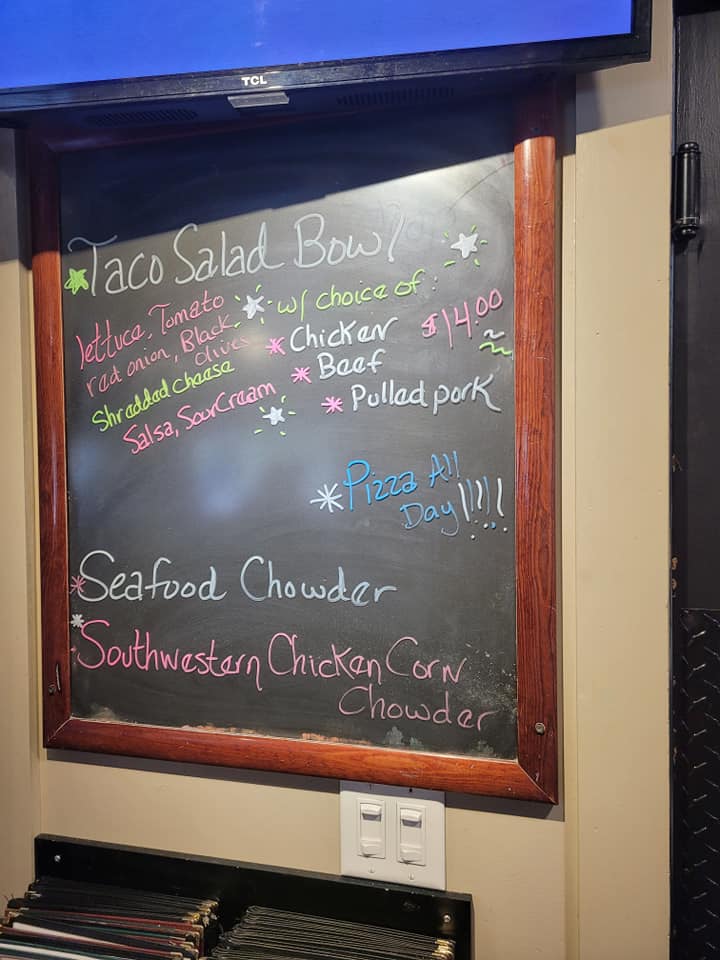 TCL
Taco Salad Bowl
lettuce, Tomato
red onion, Black
olives
Shredded cheese
Salsa, Sour Cream
w/ choice of :
Chicken
Beef
Pulled pork
$14.00
Pizza All
Day!!!!
Seafood Chowder
Southwestern Chicken Corn
Chowder